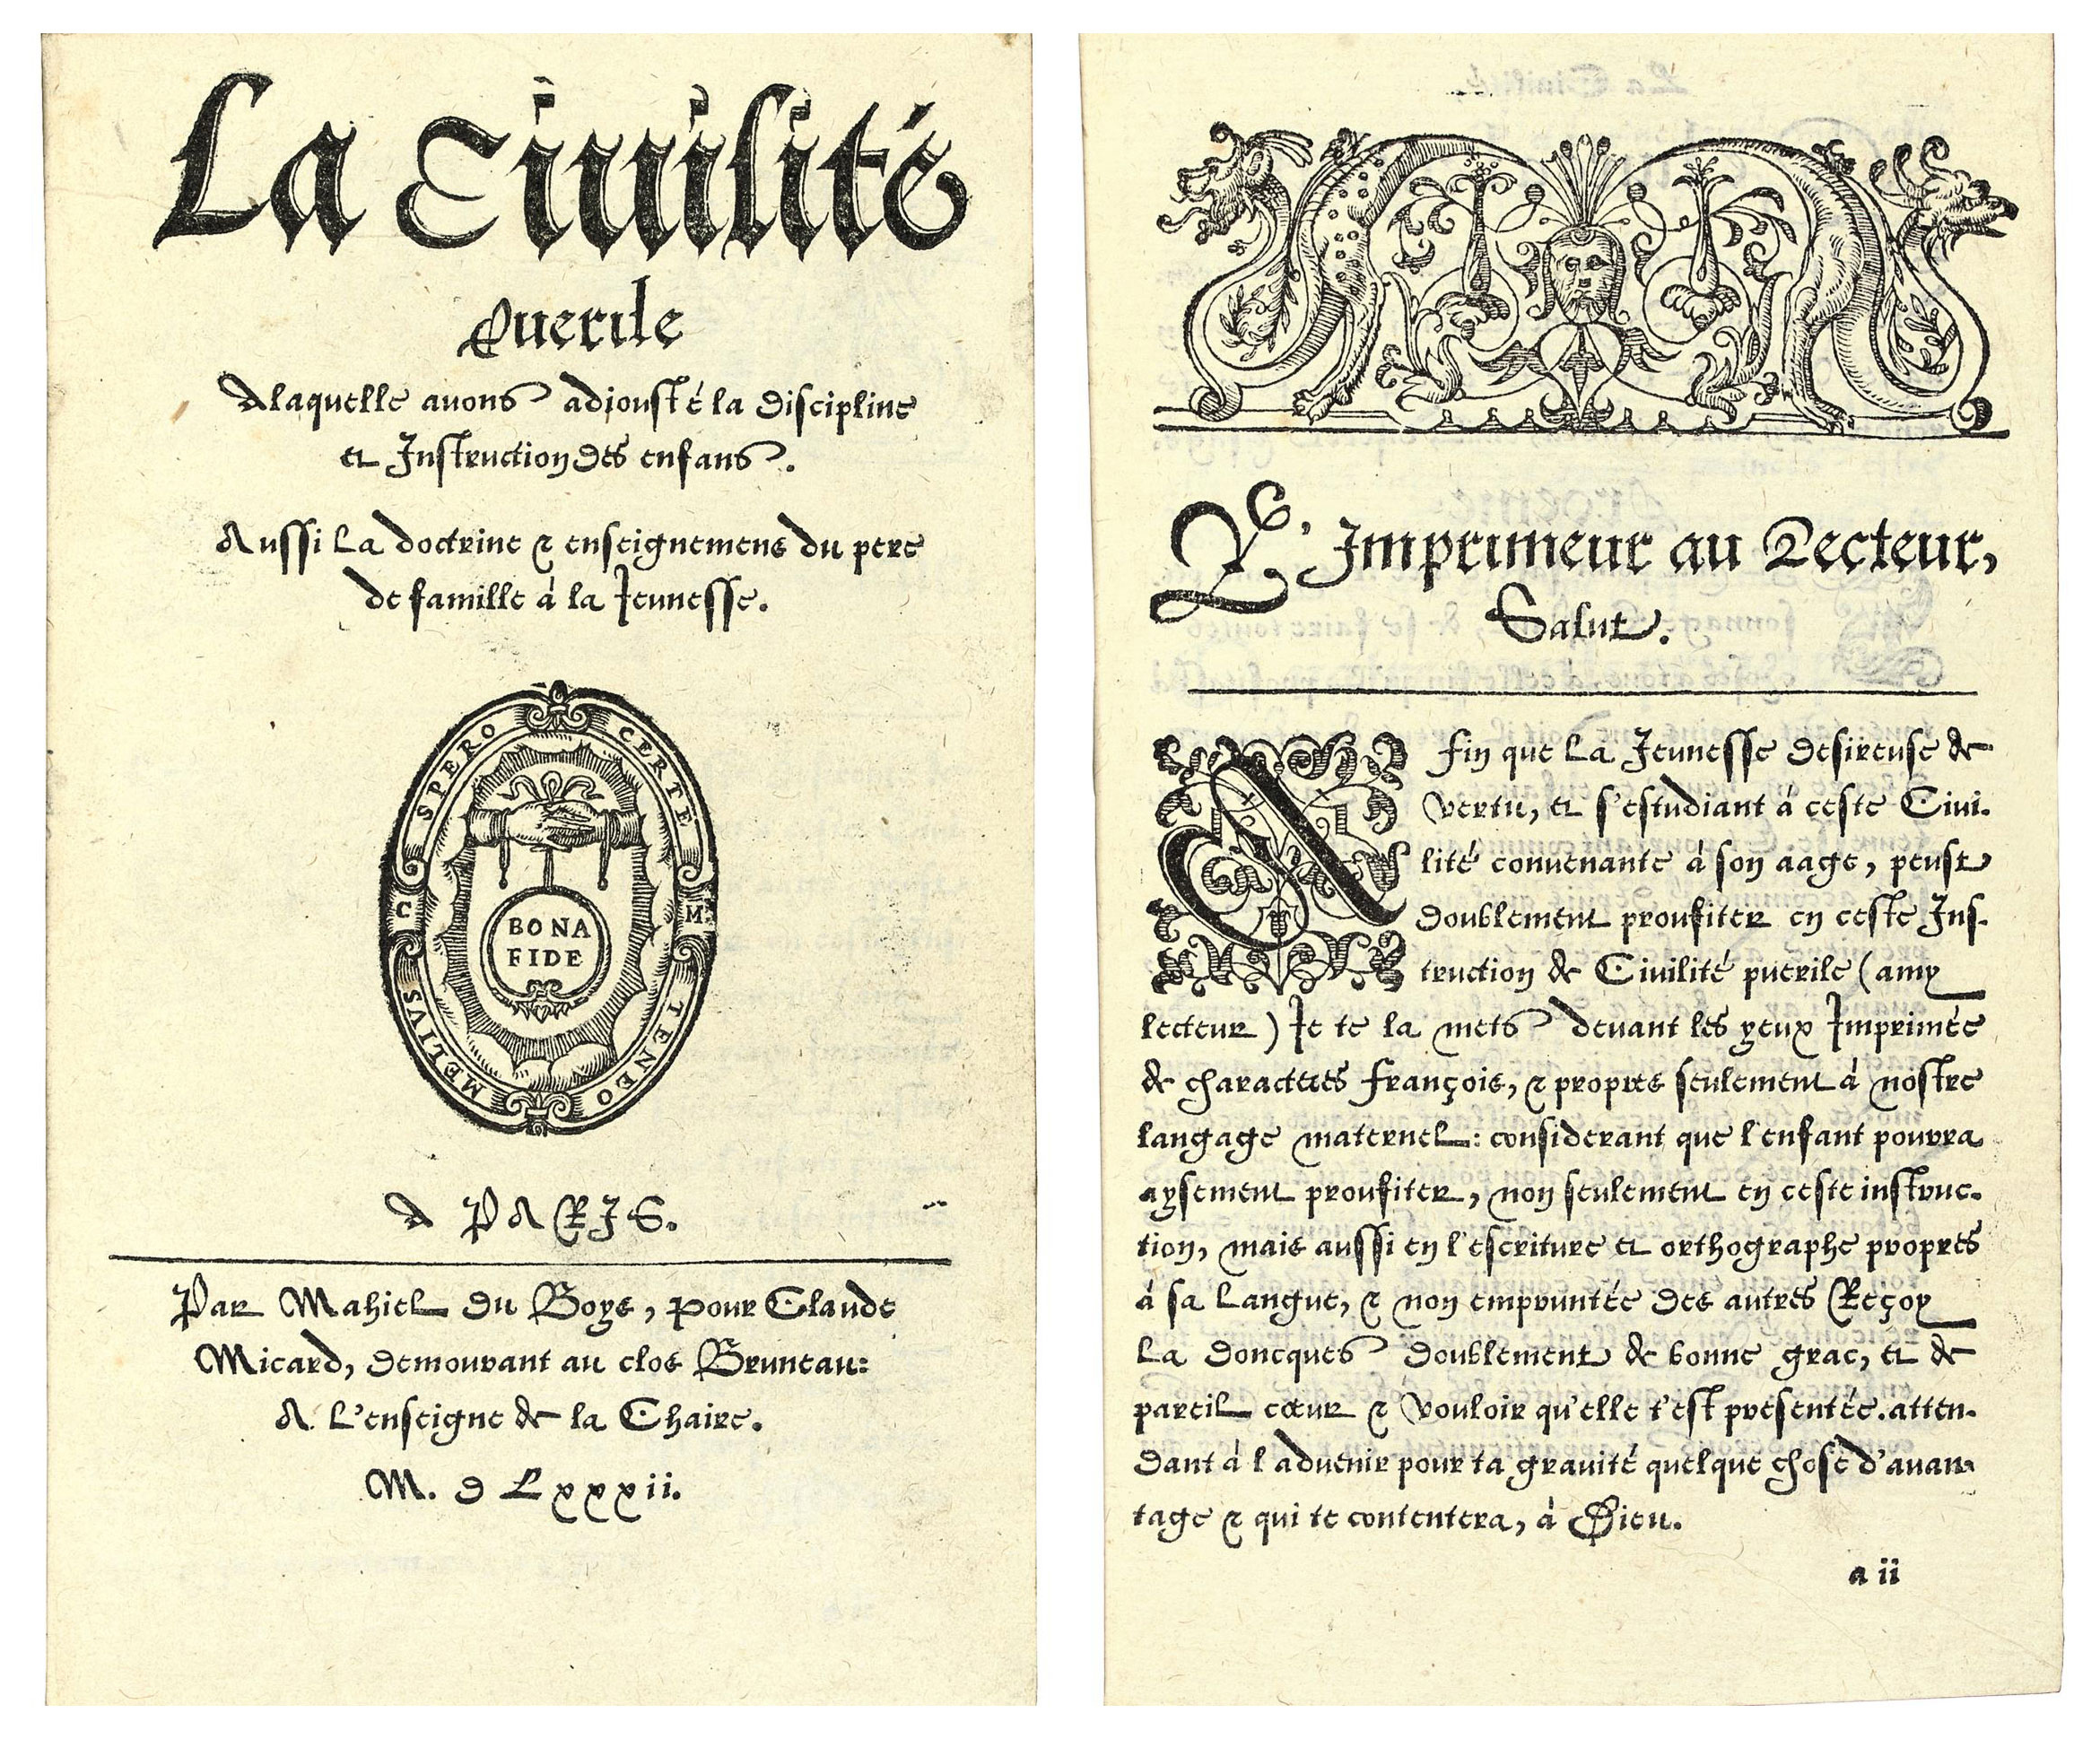 La Ciuilité
Puerile
Alaquelle auons adiousté la Discipline
et Instruction des enfans.
Aussi La doctrine & enseignemens du pere
de famille à la Jeunesse.
SPERO CERTE
BONA
FIDE
C M
MELIUS TENEO
A PARIS.
Par Mahiel du Boys, pour Claude
Micard, demourant au clos Bruneau:
A L'enseigne de la Chaire.
M. D Lxxxii.
L'Imprimeur au Lecteur,
Salut.
A fin que La Jeunesse desireuse de
vertu, et s'estudiant à ceste Ciui-
lité conuenante à son aage, peust
doublement proufiter en ceste Ins-
truction de Ciuilité puerile (amy
lecteur) Ie te la mets deuant les yeux Imprimée
de characteres françois, & propres seulement à nostre
langage maternel: considerant que l'enfant pourra
aysement proufiter, non seulement en ceste instruc-
tion, mais aussi en l'escriture et orthographe propres
à sa Langue, & non empruntée des autres Reçoy
La doncques doublement de bonne grac, et de
pareil cœur & vouloir qu'elle t'est presentée. atten-
dant à l'aduenir pour ta grauité quelque chose d'auan-
tage & qui te contentera, à Dieu.
a ii